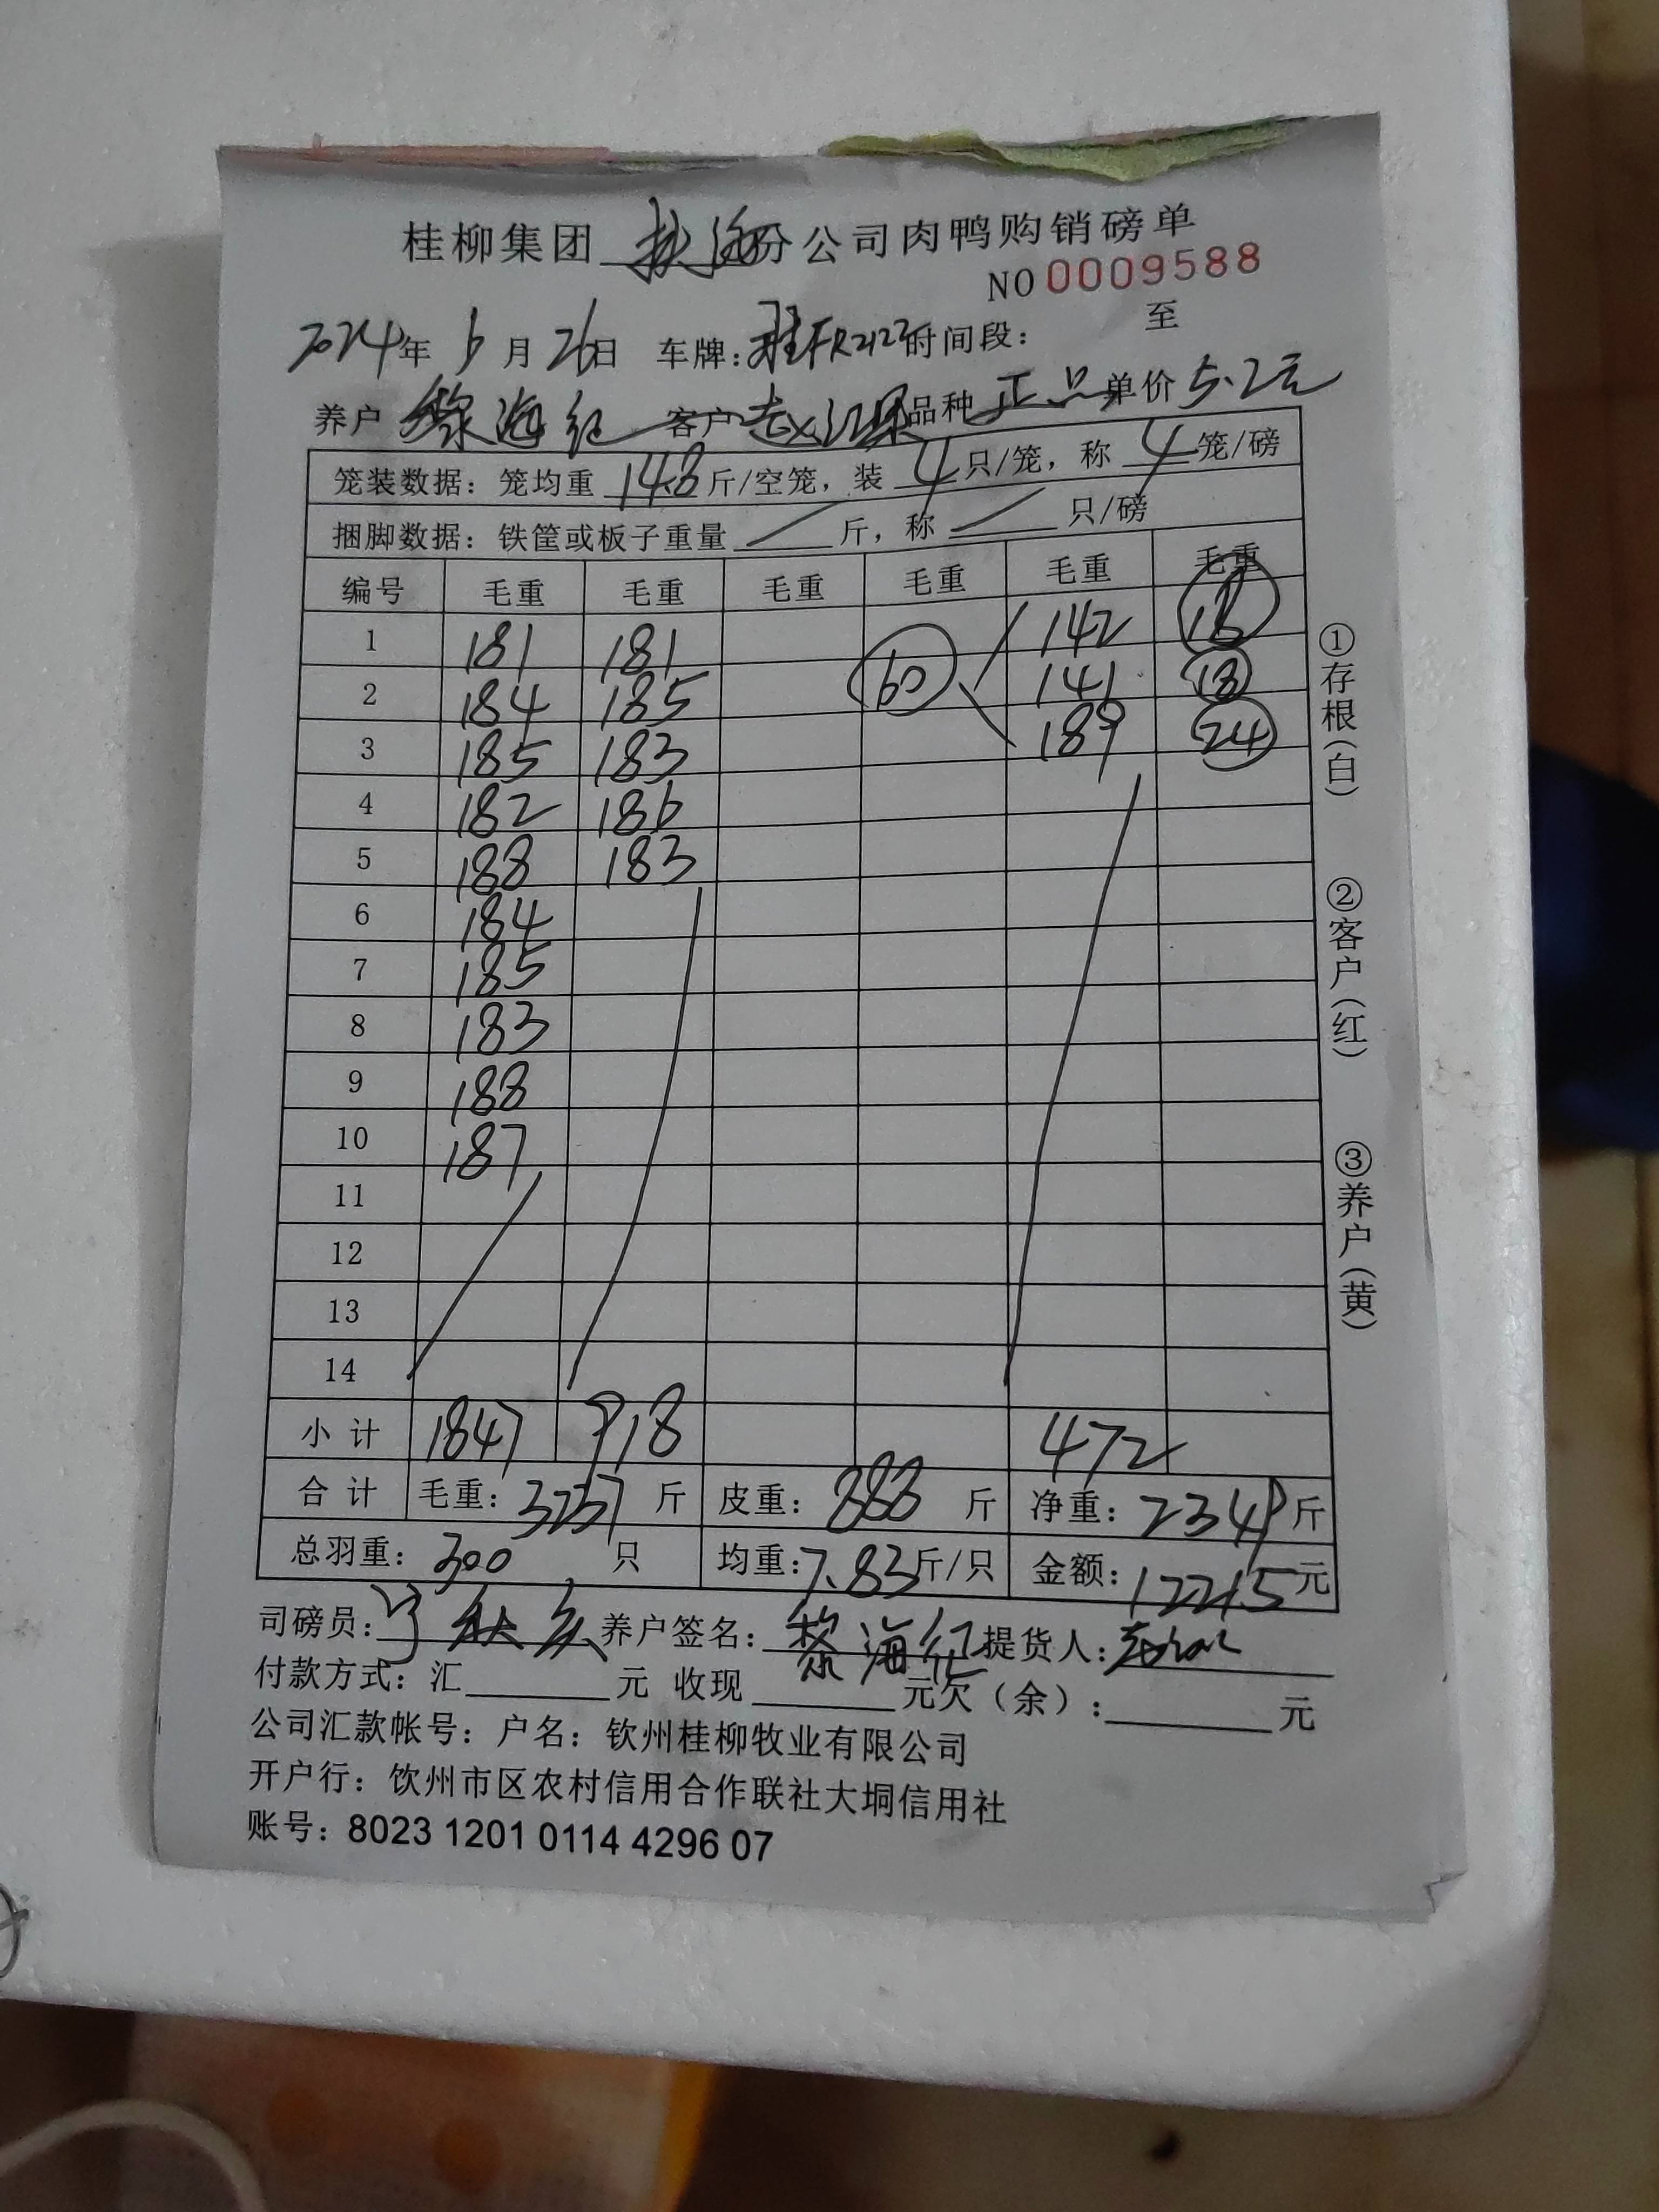 桂柳集团 分公司肉鸭购销磅单
NO 0009588
2024年 6月 26日 车牌: 时间段: 至
养户 黎海红 客户 品种 正品 单价 5.2元
笼装数据: 笼均重 14.8 斤/空笼, 装 4 只/笼, 称 4 笼/磅
捆脚数据: 铁筐或板子重量 / 斤, 称 / 只/磅
编号 毛重 毛重 毛重 毛重 毛重 毛重
1 181 181 142 18
2 184 185 60 141 18
3 185 183 189 24
4 182 186
5 188 183
6 184
7 185
8 183
9 188
10 187
11
12
13
14
小计 1847 918 472
合计 毛重: 3237 斤 皮重: 888 斤 净重: 2349 斤
总羽重: 300 只 均重: 7.83 斤/只 金额: 12215 元
司磅员: 养户签名: 黎海红 提货人:
付款方式: 汇 元 收现 元欠(余): 元
公司汇款帐号: 户名: 钦州桂柳牧业有限公司
开户行: 钦州市区农村信用合作联社大垌信用社
账号: 8023 1201 0114 4296 07
①存根(白)
②客户(红)
③养户(黄)